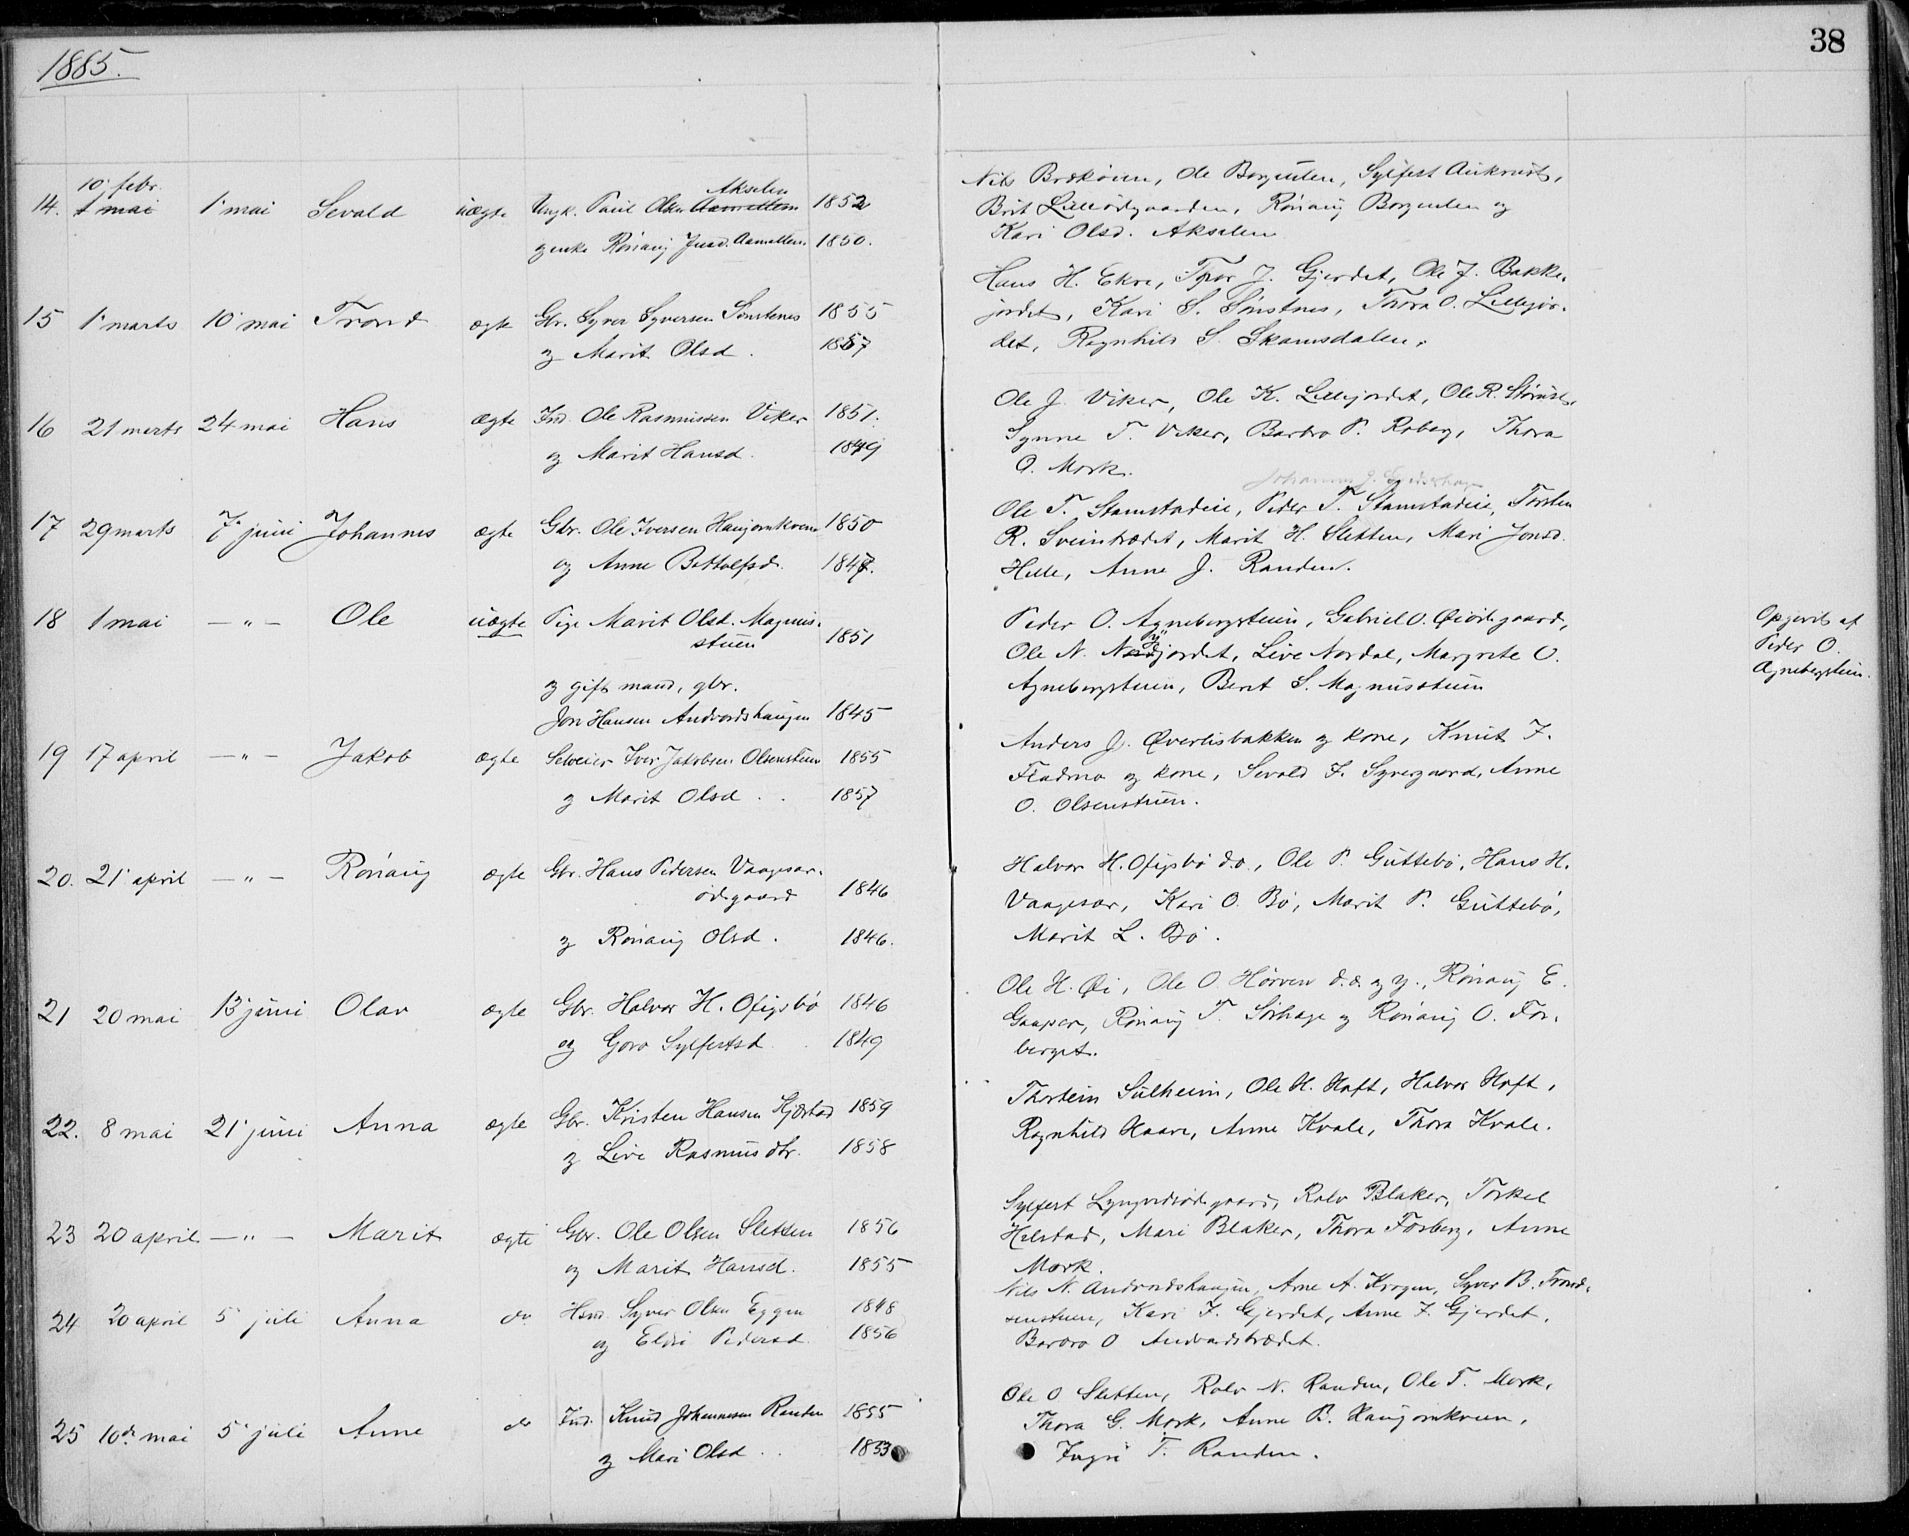 1885.
38
10' febr.
14. 1 mai 1' mai Sevald uægte Ungk. Paul Olsen Aamotten Akselen 1852
og enke Rönaug Jnsd. Aamotten 1850.
Nils Bræköien, Ole Borgulen, Sylfest Aukrust,
Brit Lilleödegaarden, Rönaug Borgulen og
Kari Olsd. Akselen
15 1' marts 10' mai Trond ægte Gbr. Syver Syversen Sönstenes 1855
og Marit Olsd. 1857
Hans H. Ekre, Thor J. Gjerdet, Ole J. Bakke-
jordet, Kari S. Sönstnes, Thora O. Lillejor-
det, Ragnhild S. Skamsdalen.
16 21 marts 24 mai Hans ægte Ind. Ole Rasmussen Viker 1851.
og Marit Hansd. 1849
Ole J. Viker, Ole K. Lillejordet, Ole R.
Synne T. Viker, Barbro P. Raberg, Thora
O. Mork.
17 29 marts 7' juni Johannes ægte Gbr. Ole Iversen Haugornkveen 1850
og Anne Bottolfsd. 1847.
Johannes J.
Ole T. Stamstadeie, Peder T. Stamstadeie, Torsten
R. Sveintrædet, Marit H. Sletten, Mari Jonsd.
Helle, Anne J. Randen.
18 1 mai — " — Ole uægte Pige Marit Olsd. Magnus-
stuen 1851
og gift mand, gbr.
Jon Hansen Andvordshaugen 1845
Peder O. Agnebergstuen, Gabriel O. Öiödegaard,
Ole N. Nordjordet, Live Nordal, Margrete O.
Agnebergstuen, Berit S. Magnusstuen
Opgivet af
Peder O.
Agnebergstuen.
19 17 april — " — Jakob ægte Selveier Iver Jakobsen Olsenstuen 1855
og Marit Olsd. . 1857
Anders J. Øverlisbakken og kone, Knut I.
Fladmo og kone, Sevald I. Syvergaard, Anne
O. Olsenstuen.
20. 21' april — " — Rönaug ægte Gbr. Hans Pedersen Vaagesar-
ödegaard 1846
og Rönaug Olsd. 1846.
Halvor H. Ofigsbö d.o., Ole P. Guttebö, Hans H.
Vaagesar, Kari O. Bö, Marit P. Guttebö,
Marit L. Bö.
21 20 mai 13' juni Olav ægte Gbr. Halvor H. Ofigsbö 1846
og Goro Sylfestsd. 1849
Ole H. Øi, Ole O. Hörven d.æ. og y., Rönaug E.
Gaaper, Rönaug T. Sörhage og Rönaug O. For-
berget.
22. 8 mai 21' juni Anna ægte Gbr. Kristen Hansen Kjæstad 1859
og Live Rasmusdtr. 1858
Thortein Sulheim, Ole H. Hoft, Halvor Hoft,
Ragnhild Haave, Anne Kvale, Thora Kvale.
23 20 april — " — Marit ægte Gbr. Ole Olsen Sletten 1856
og Marit Hansd. 1855
Sylfest Lyngvedsödegaard, Rolv Blaker, Torkel
Helstad, Mari Blaker, Thora Forberg, Anne
Mork.
24 20 april 5' juli Anna do Hsm. Syver Olsen Eggen 1848
og Eldri Pedersd. 1856
Nils N. Andvordshaugen, Arne A. Krogen, Syver B. Trond-
senstuen, Kari I. Gjerdet, Anne I. Gjerdet,
Barbro O Andvordstrædet.
25 10de mai 5' juli Anne do Ind. Knud Johannesen Randen 1855
og Mari Olsd . . 1853
Ole O Sletten, Rolv N. Randen, Ole T. Mork,
Thora G. Mork, Anne B. Haugornkveen,
Ingri T. Randen.